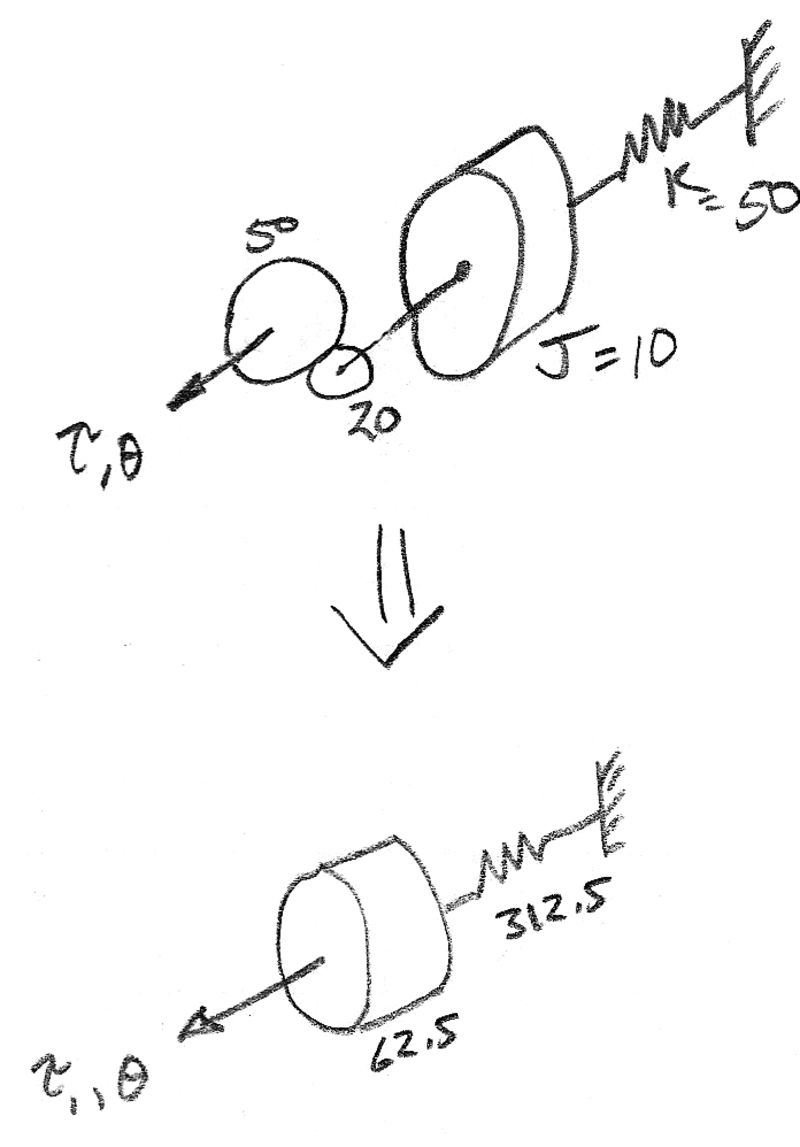 K=50
50
J=10
20
τ,θ
312.5
62.5
τ,,θ